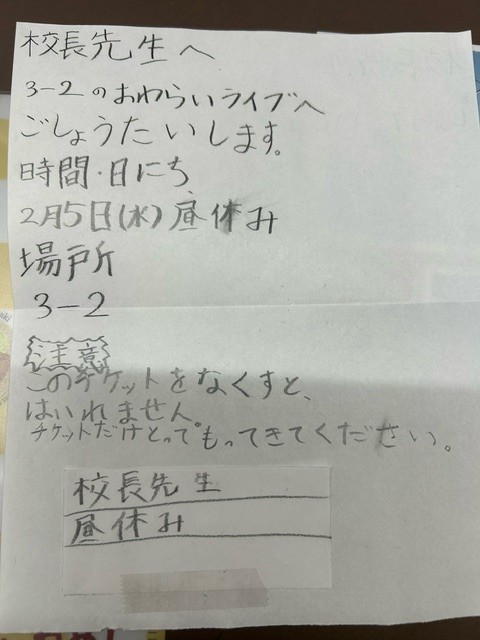 校長先生へ
3-2のおわらいライブへ
ごしょうたいします。
時間・日にち
2月5日(水)昼休み
場所
3-2
注意
このチケットをなくすと、
はいれません。
チケットだけとってもってきてください。
校長先生
昼休み